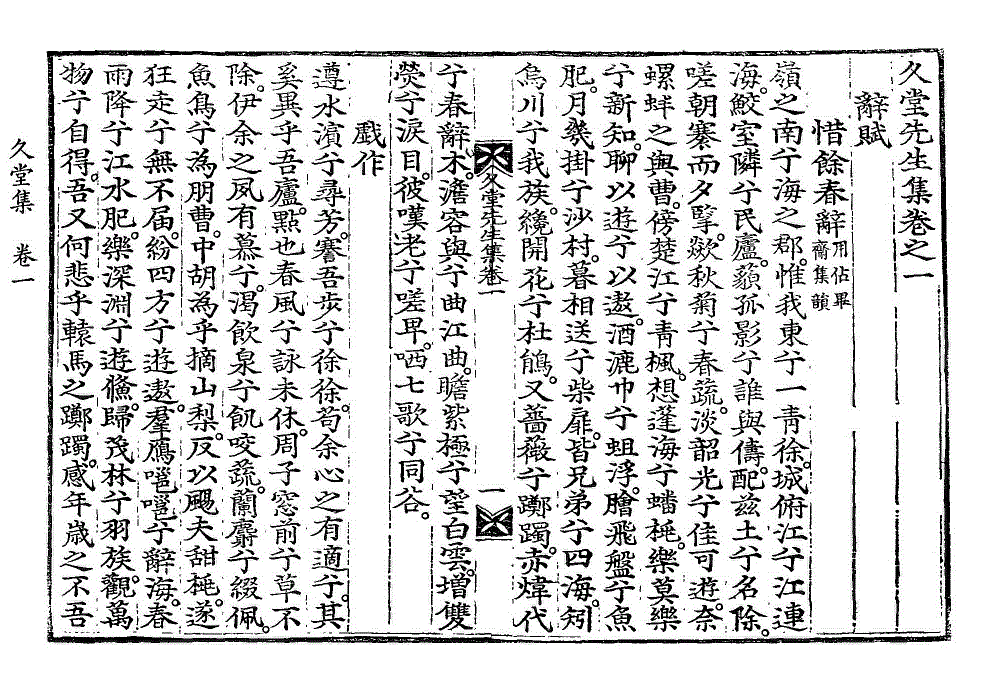 久堂先生集卷之一
辭賦
惜餘春辭用佔畢齋集韻
嶺之南兮海之郡。惟我東兮一靑徐。城俯江兮江連
海。鮫室隣兮民廬。藐孤影兮誰與儔。配玆土兮名除。
嗟朝搴而夕擥。歘秋菊兮春蔬。淡韶光兮佳可遊。奈
螺蚌之與曹。傍楚江兮靑楓。想蓬海兮蟠桃。樂莫樂
兮新知。聊以遊兮以遨。酒漉巾兮蛆浮。膾飛盤兮魚
肥。月幾掛兮沙村。暮相送兮柴扉。皆兄弟兮四海。矧
烏川兮我族。纔開花兮杜鵑。又薔薇兮躑躅。赤煒代
久堂先生集卷一
一
兮春辭木。澹容與兮曲江曲。瞻紫極兮望白雲。增雙
熒兮淚目。彼嘆老兮嗟卑。哂七歌兮同谷。
戲作
遵水濱兮尋芳。謇吾步兮徐徐。苟余心之有適兮。其
奚異乎吾廬。點也春風兮詠未休。周子窓前兮草不
除。伊余之夙有慕兮。渴飮泉兮飢咬蔬。蘭麝兮綴佩。
魚鳥兮爲朋曹。中胡爲乎摘山梨。反以颺夫甜桃。遂
狂走兮無不届。紛四方兮遊遨。羣鴈嗈嗈兮辭海。春
雨降兮江水肥。樂深淵兮遊鯈。歸茂林兮羽族。觀萬
物兮自得。吾又何悲乎轅馬之躑躅。感年歲之不吾
久堂集　卷一